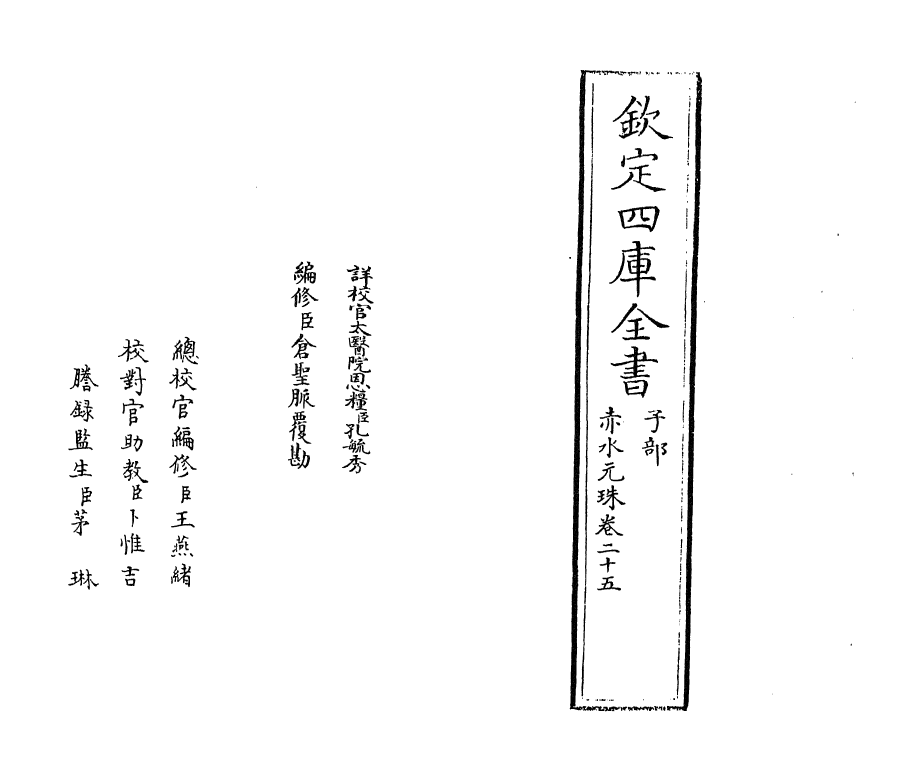 欽定四庫全書
子部
赤水元珠卷二十五
詳校官太醫院恩糧臣孔毓秀
編修臣倉聖脈覆勘
總校官編修臣王燕緒
校對官助教臣卜惟吉
謄録監生臣茅琳